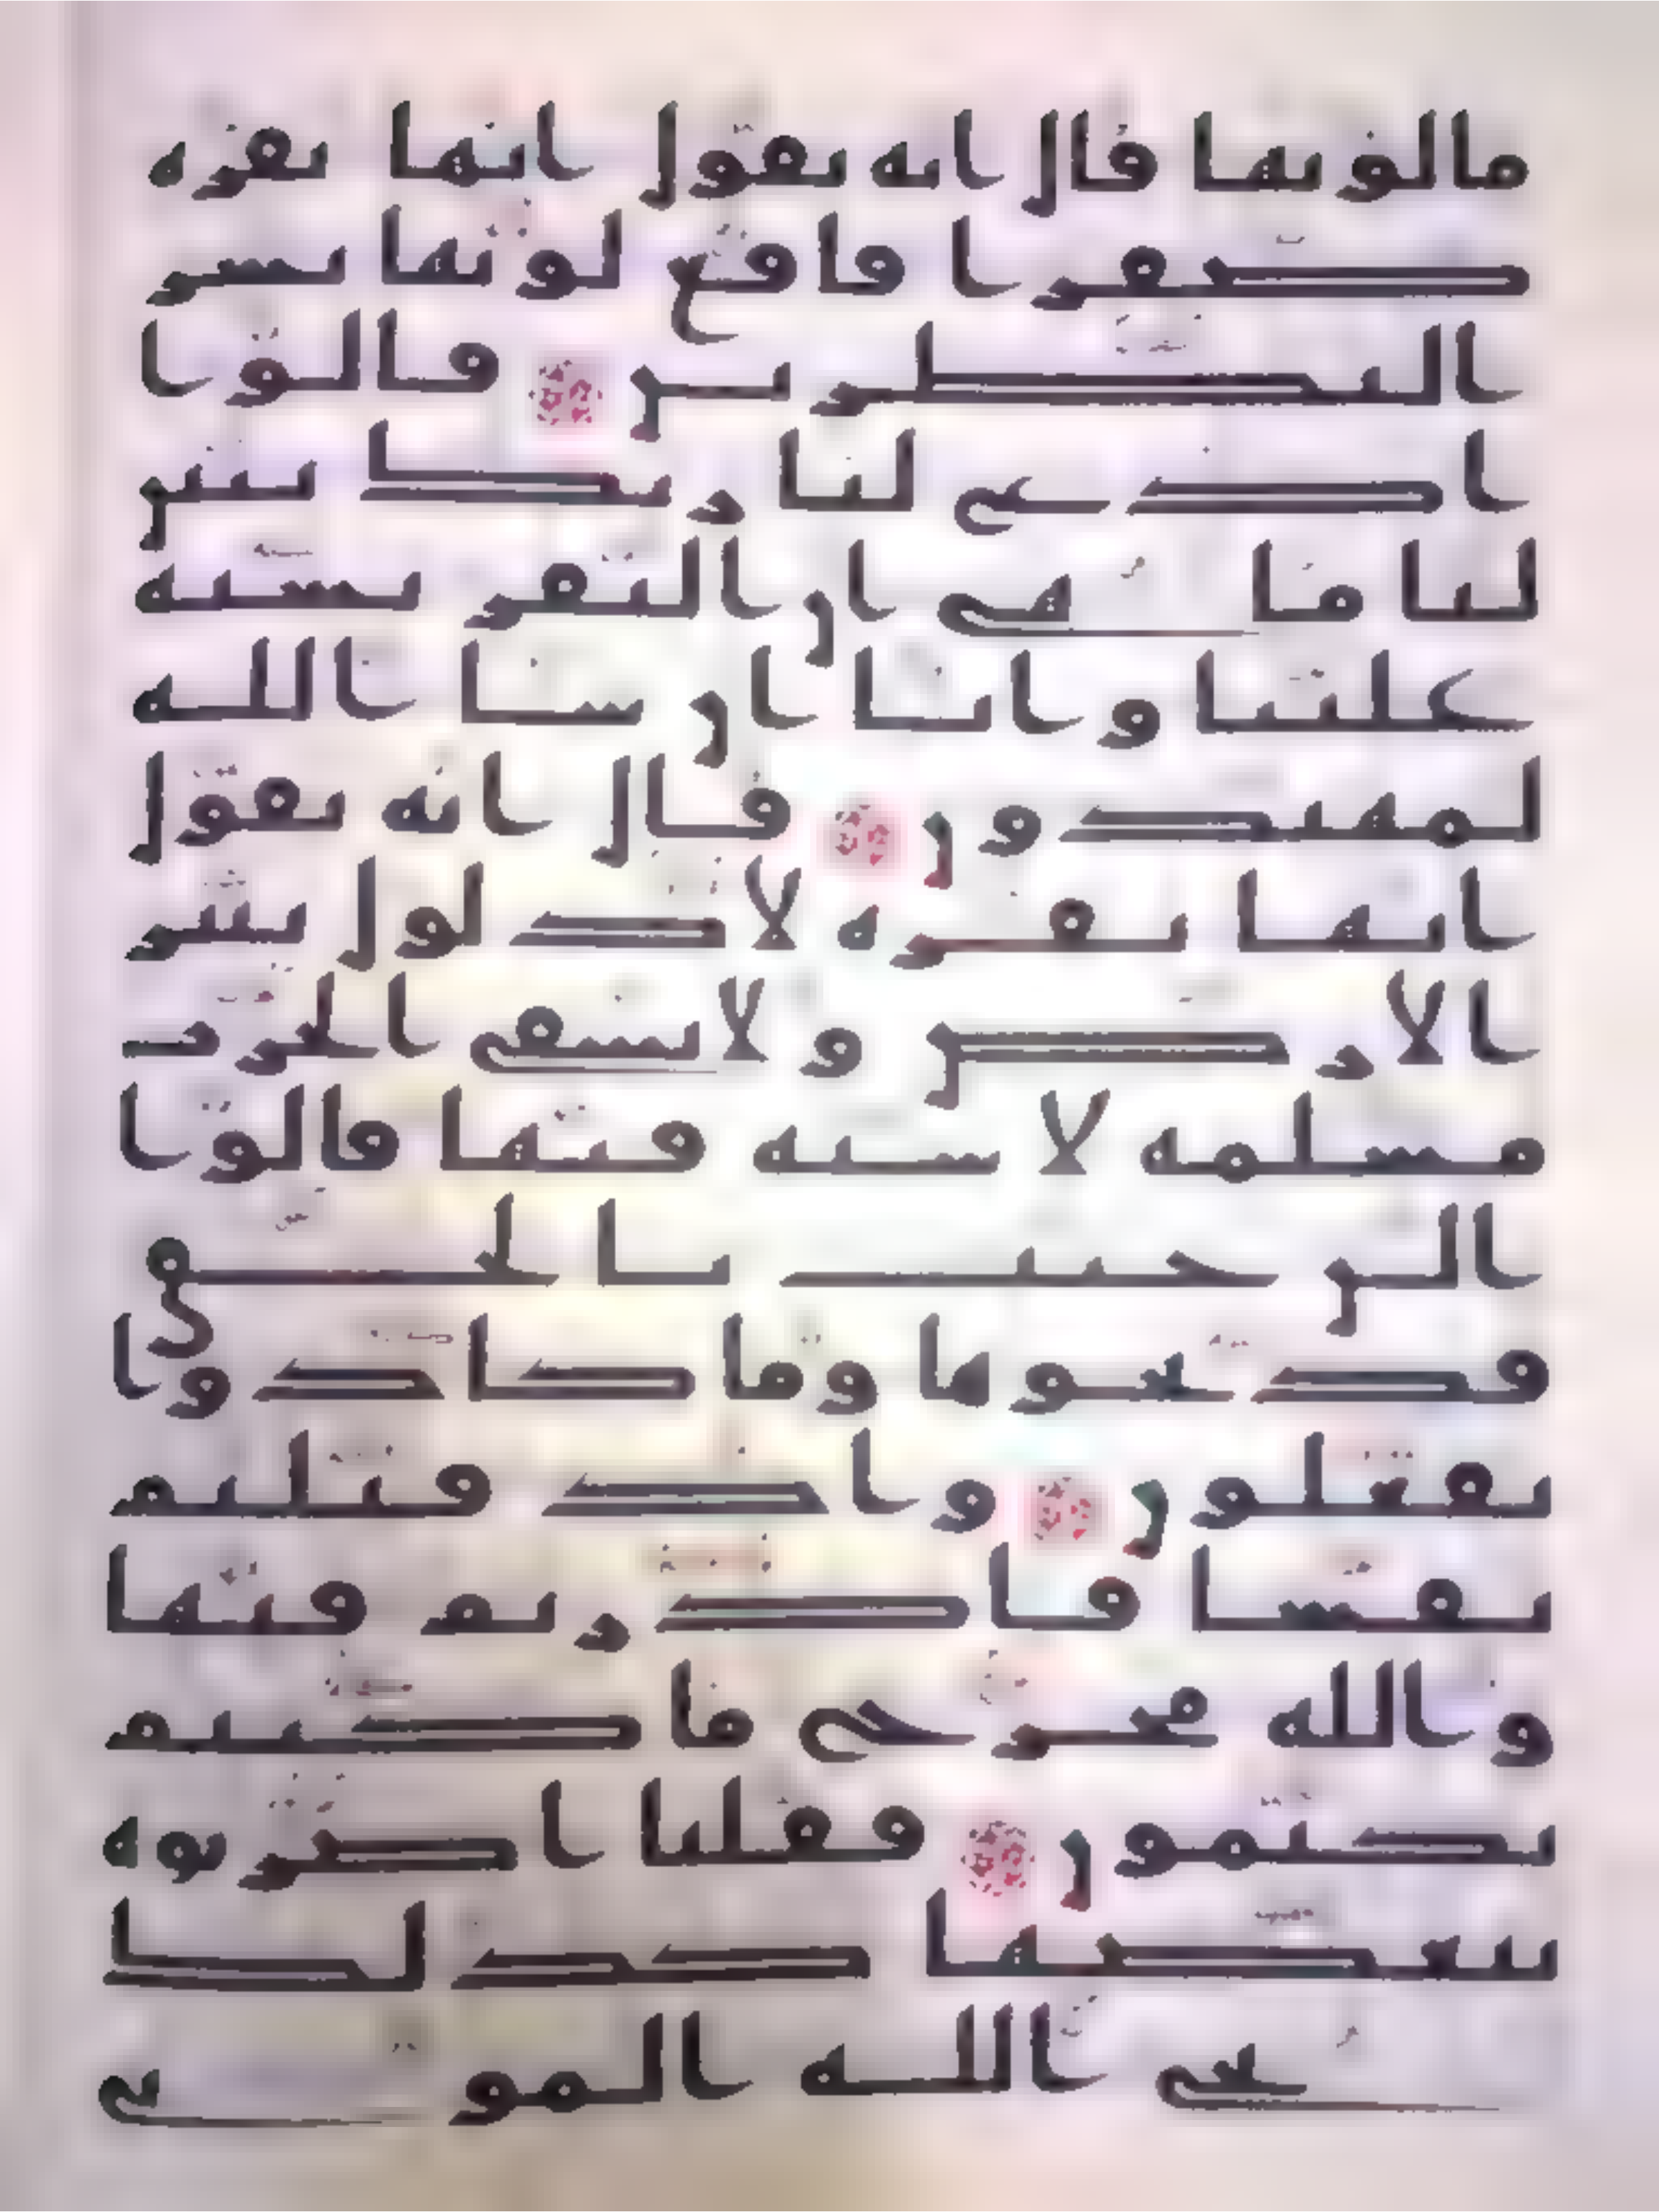 ما لونها قال انه يقول انها بقره
صفرا فاقع لونها تسر
النظرين قالوا
ادع لنا ربك يبين
لنا ما هي ان البقر تشبه
علينا وانا ان شا الله
لمهتدون قال انه يقول
انها بقره لا ذلول تثير
الارض ولا تسقي الحرث
مسلمه لا شيه فيها قالوا
الن جيت بالحق
فذبحوها وما كادوا
يفعلون واذ قتلتم
نفسا فادرتم فيها
والله مخرج ما كنتم
تكتمون فقلنا اضربوه
ببعضها كذلك
يحي الله الموتي